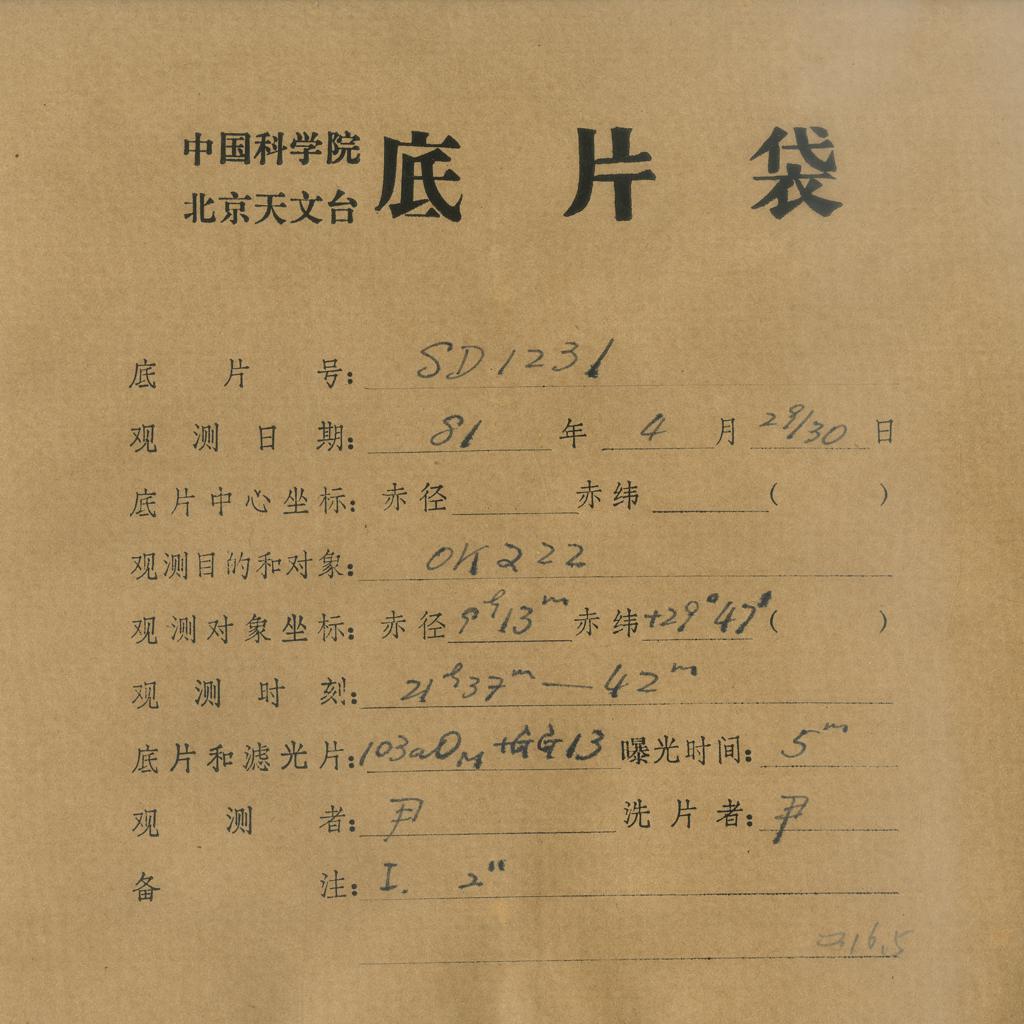 中国科学院
北京天文台 底片袋
底片号: SD1231
观测日期: 81年4月29/30日
底片中心坐标: 赤径 赤纬 ( )
观测目的和对象: OK222
观测对象坐标: 赤径 9h13m 赤纬 +29°47' ( )
观测时刻: 21h37m—42m
底片和滤光片: 103aOM+GG13 曝光时间: 5m
观测者: 尹 洗片者: 尹
备注: I. 2"
16.5